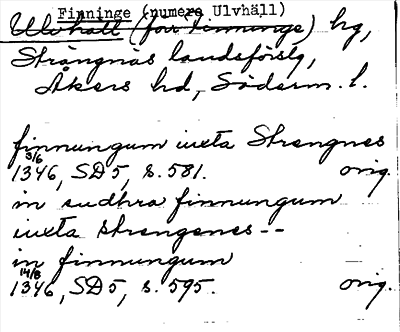 Finninge (numera Ulvhäll)
Ulvhäll (förr Finninge) hg,
Strängnäs landsförslg,
Åkers hd, Söderm. l.
finnungum iuxta Strengnes
3/6
1346, SD 5, s. 581. orig.
in sudhra finnungum
iuxta strengenes--
in finnungum
14/8
1346, SD 5, s. 595. orig.